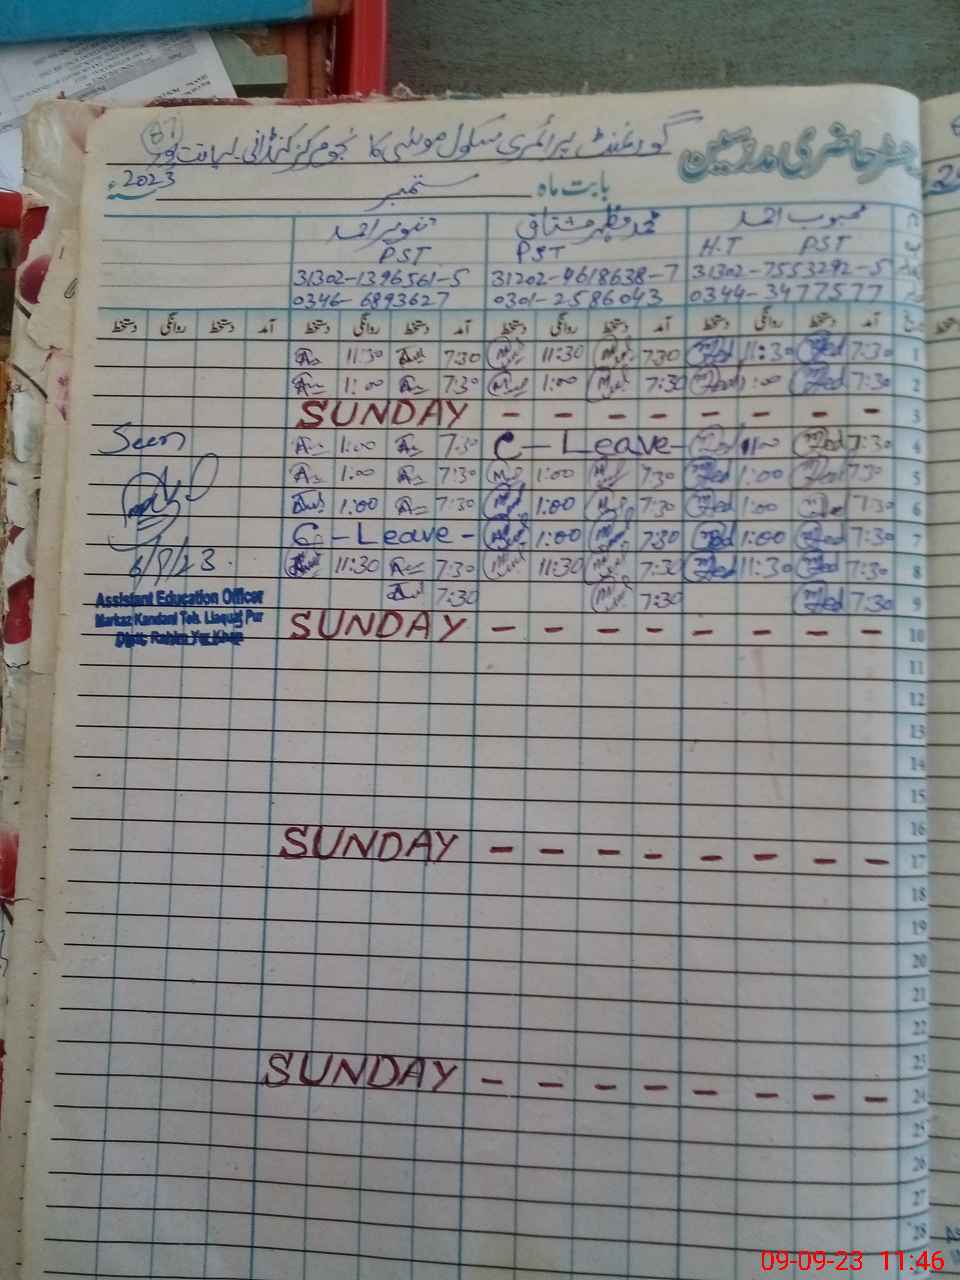 رجسٹر حاضری مدرسین
گورنمنٹ پرائمری سکول کا مرکز کنڈانی لیاقت پور
67
بابت ماہ ستمبر 2023ء
محبوب احمد محمد مظہر مشتاق تنویر احمد
H.T PST PST PST
31302-7553292-5 31202-4618638-7 31302-1396561-5
0344-3477577 0301-2586043 0346-6893627
آمد دستخط روانگی دستخط آمد دستخط روانگی دستخط آمد دستخط روانگی دستخط آمد دستخط روانگی دستخط
1 7:30 11:30 7:30 11:30 7:30 11:30
2 7:30 1:00 7:30 1:00 7:30 1:00
3 SUNDAY - - - - - - - -
4 7:30 1:00 C-Leave- 7:30 1:00
5 7:30 1:00 7:30 1:00 7:30 1:00
6 7:30 1:00 7:30 1:00 7:30 1:00
7 7:30 1:00 7:30 1:00 C-Leave-
8 7:30 11:30 7:30 11:30 7:30 11:30
9 7:30 7:30 7:30
10 SUNDAY - - - - - - - -
11
12
13
14
15
16
17 SUNDAY - - - - - - - -
18
19
20
21
22
23
24 SUNDAY - - - - - - - -
25
26
27
28
Seen
6/9/23.
Assistant Education Officer
Markaz Kandani Teh. Liaquat Pur
Distt. Rahim Yar Khan
09-09-23 11:46